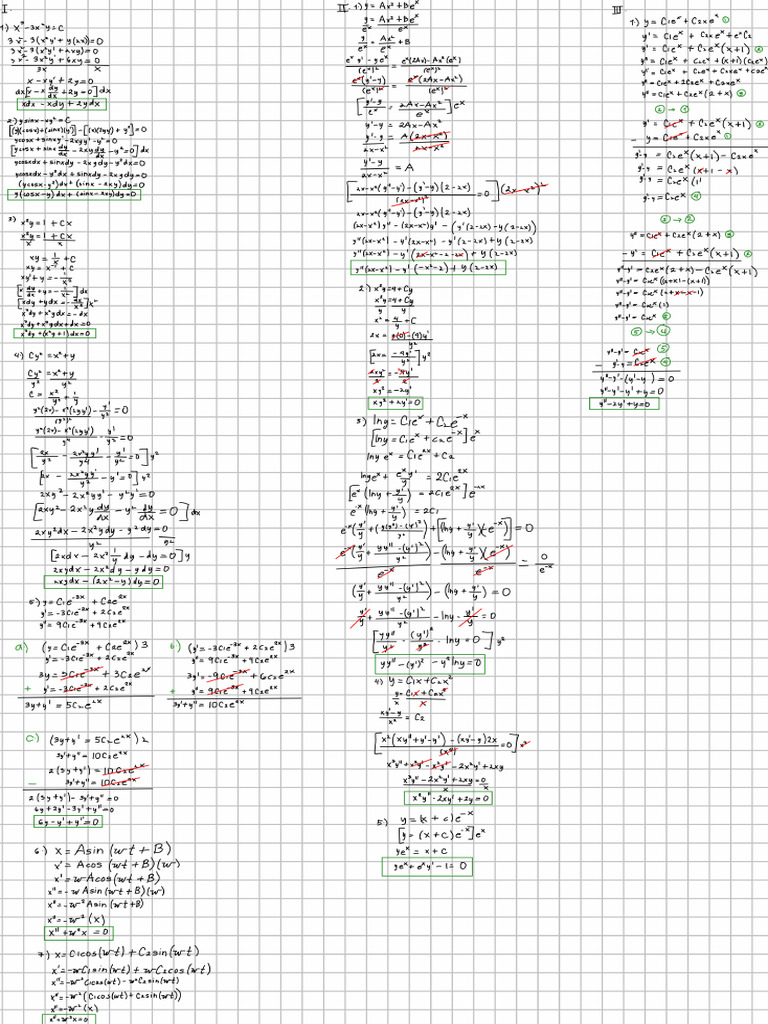 I.
1) x³ - 3x²y = C
3x² - 3(x²y' + y(2x)) = 0
3x² - 3(x²y' + 2xy) = 0
3x² - 3x²y' + 6xy = 0
3x x
x - xy' + 2y = 0
dx[x - x dy/dx + 2y = 0] dx
xdx - xdy + 2ydx
2) y sinx - xy² = C
[y(cosx) + (sinx)(y')] - [(x)(2yy') + y²] = 0
ycosx + sinxy' - 2xyy' - y² = 0
[ycosx + sinx dy/dx - 2xy dy/dx - y² = 0] dx
ycosxdx + sinxdy - 2xydy - y²dx = 0
(ycosx - y²)dx + (sinx - 2xy)dy = 0
y(cosx - y)dx + (sinx - 2xy)dy = 0
3) x²y = 1 + Cx
x²y/x = 1 + Cx/x
xy = 1/x + C
xy = x⁻¹ + C
xy' + y = -1/x²
[x dy/dx + y = -1/x²] dx
[xdy + ydx = -dx/x²] x²
x³dy + x²ydx = -dx
x³dy + x²ydx + dx = 0
x³dy + (x²y + 1)dx = 0
4) Cy² = x² + y
Cy²/y² = x² + y/y²
C = x²/y² + 1/y
y²(2x) - x²(2yy')/(y²)² - y'/y² = 0
y²(2x) - x²(2yy')/y⁴ - y'/y² = 0
[2x/y² - 2x²yy'/y⁴ - y'/y² = 0] y²
[2x - 2x²yy'/y² - y' = 0] y²
2xy² - 2x²yy' - y²y' = 0
[2xy² - 2x²y dy/dx - y² dy/dx = 0] dx
2xy²dx - 2x²ydy - y²dy = 0
y² y²
[2xdx - 2x² 1/y dy - dy = 0] y
2xydx - 2x²dy - ydy = 0
2xydx - (2x² - y)dy = 0
5) y = C₁e⁻³ˣ + C₂e²ˣ
y' = -3C₁e⁻³ˣ + 2C₂e²ˣ
y'' = 9C₁e⁻³ˣ + 4C₂e²ˣ
a) (y = C₁e⁻³ˣ + C₂e²ˣ) 3
y' = -3C₁e⁻³ˣ + 2C₂e²ˣ
3y = 3C₁e⁻³ˣ + 3C₂e²ˣ
+ y' = -3C₁e⁻³ˣ + 2C₂e²ˣ
3y + y' = 5C₂e²ˣ
b) (y' = -3C₁e⁻³ˣ + 2C₂e²ˣ) 3
y'' = 9C₁e⁻³ˣ + 4C₂e²ˣ
3y' = -9C₁e⁻³ˣ + 6C₂e²ˣ
+ y'' = 9C₁e⁻³ˣ + 4C₂e²ˣ
3y' + y'' = 10C₂e²ˣ
c) (3y + y' = 5C₂e²ˣ) 2
3y' + y'' = 10C₂e²ˣ
2(3y + y') = 10C₂e²ˣ
- 3y' + y'' = 10C₂e²ˣ
2(3y + y') - 3y' + y'' = 0
6y + 2y' - 3y' + y'' = 0
6y - y' + y'' = 0
6) x = Asin(wt + B)
x' = Acos(wt + B)(w)
x' = wAcos(wt + B)
x'' = -wAsin(wt + B)(w)
x'' = -w²Asin(wt + B)
x'' = -w²(x)
x'' + w²x = 0
7) x = C₁cos(wt) + C₂sin(wt)
x' = -wC₁sin(wt) + wC₂cos(wt)
x'' = -w²C₁cos(wt) - w²C₂sin(wt)
x'' = -w²(C₁cos(wt) + C₂sin(wt))
x'' = -w²(x)
x'' = w²x = 0
II.
1) y = Ax² + Beˣ
y/eˣ = Ax² + Beˣ/eˣ
y/eˣ = Ax²/eˣ + B
eˣy' - yeˣ/(eˣ)² = eˣ(2Ax) - Ax²(eˣ)/(eˣ)²
eˣ(y' - y)/(eˣ)² = eˣ(2Ax - Ax²)/(eˣ)²
[y' - y/eˣ = 2Ax - Ax²/eˣ] eˣ
y' - y = 2Ax - Ax²
y' - y/2x - x² = A(2x - x²)/2x - x²
y' - y/2x - x² = A
[2x - x²(y'' - y') - (y' - y)(2 - 2x)/(2x - x²)² = 0] (2x - x²)²
2x - x²(y'' - y') - (y' - y)(2 - 2x)
(2x - x²)y'' - (2x - x²)y' - (y'(2 - 2x) - y(2 - 2x))
y''(2x - x²) - y'(2x - x²) - y'(2 - 2x) + y(2 - 2x)
y''(2x - x²) - y'(2x - x² - 2 - 2x) + y(2 - 2x)
y''(2x - x²) - y'(-x² - 2) + y(2 - 2x)
2) x²y = 4 + Cy
x²y/y = 4 + Cy/y
x² = 4/y + C
2x = y(0) - (4)y'/y²
[2x = -4y'/y²] y²
2xy²/2 = -4y'/2
xy² = -2y'
xy² + 2y' = 0
3) lny = C₁eˣ + C₂e⁻ˣ
[lny = C₁eˣ + C₂e⁻ˣ] eˣ
lny eˣ = C₁e²ˣ + C₂
lnyeˣ + eˣy'/y = 2C₁e²ˣ
[eˣ(lny + y'/y) = 2C₁e²ˣ] e⁻²ˣ
e⁻ˣ(lny + y'/y) = 2C₁
e⁻ˣ(y'/y + (y(y'') - (y')²)/y²) + [(lny + y'/y)(-e⁻ˣ)] = 0
e⁻ˣ(y'/y + yy'' - (y')²/y²) - (lny + y'/y)(e⁻ˣ) = 0
e⁻ˣ e⁻ˣ e⁻ˣ
(y'/y + yy'' - (y')²/y²) - (lny + y'/y) = 0
y'/y + yy'' - (y')²/y² - lny - y'/y = 0
[yy''/y² - (y')²/y² - lny = 0] y²
yy'' - (y')² - y²lny = 0
4) y = C₁x + C₂x²
y/x = C₁x + C₂x²/x
xy' - y/x² = C₂
[x²(xy'' + y' - y') - (xy' - y)2x/(x²)² = 0] x²
x³y'' + x²y' - x²y' - 2x²y' + 2xy
x³y'' - 2x²y' + 2xy = 0
x x
x²y'' - 2xy' + 2y = 0
5) y = (x + c)e⁻ˣ
[y = (x + c)e⁻ˣ] eˣ
yeˣ = x + c
yeˣ + eˣy' - 1 = 0
III
1) y = C₁eˣ + C₂xeˣ ①
y' = C₁eˣ + C₂xeˣ + eˣC₂
y' = C₁eˣ + C₂eˣ(x + 1) ②
y'' = C₁eˣ + C₂eˣ + (x + 1)C₂eˣ
y'' = C₁eˣ + C₂eˣ + C₂xeˣ + C₂eˣ
y'' = C₁eˣ + 2C₂eˣ + C₂xeˣ
y'' = C₁eˣ + C₂eˣ(2 + x) ③
② → ①
y' = C₁eˣ + C₂eˣ(x + 1) ②
- y = C₁eˣ + C₂xeˣ ①
y' - y = C₂eˣ(x + 1) - C₂xeˣ
y' - y = C₂eˣ(x + 1 - x)
y' - y = C₂eˣ(1)
y' - y = C₂eˣ ④
③ → ②
y'' = C₁eˣ + C₂eˣ(2 + x) ③
- y' = C₁eˣ + C₂eˣ(x + 1) ②
y'' - y' = C₂eˣ(2 + x) - C₂eˣ(x + 1)
y'' - y' = C₂eˣ(2 + x - (x + 1))
y'' - y' = C₂eˣ(2 + x - x - 1)
y'' - y' = C₂eˣ(1)
y'' - y' = C₂eˣ ⑤
⑤ → ④
y'' - y' = C₂eˣ ⑤
- y' - y = C₂eˣ ④
y'' - y' - (y' - y) = 0
y'' - y' - y' + y = 0
y'' - 2y' + y = 0